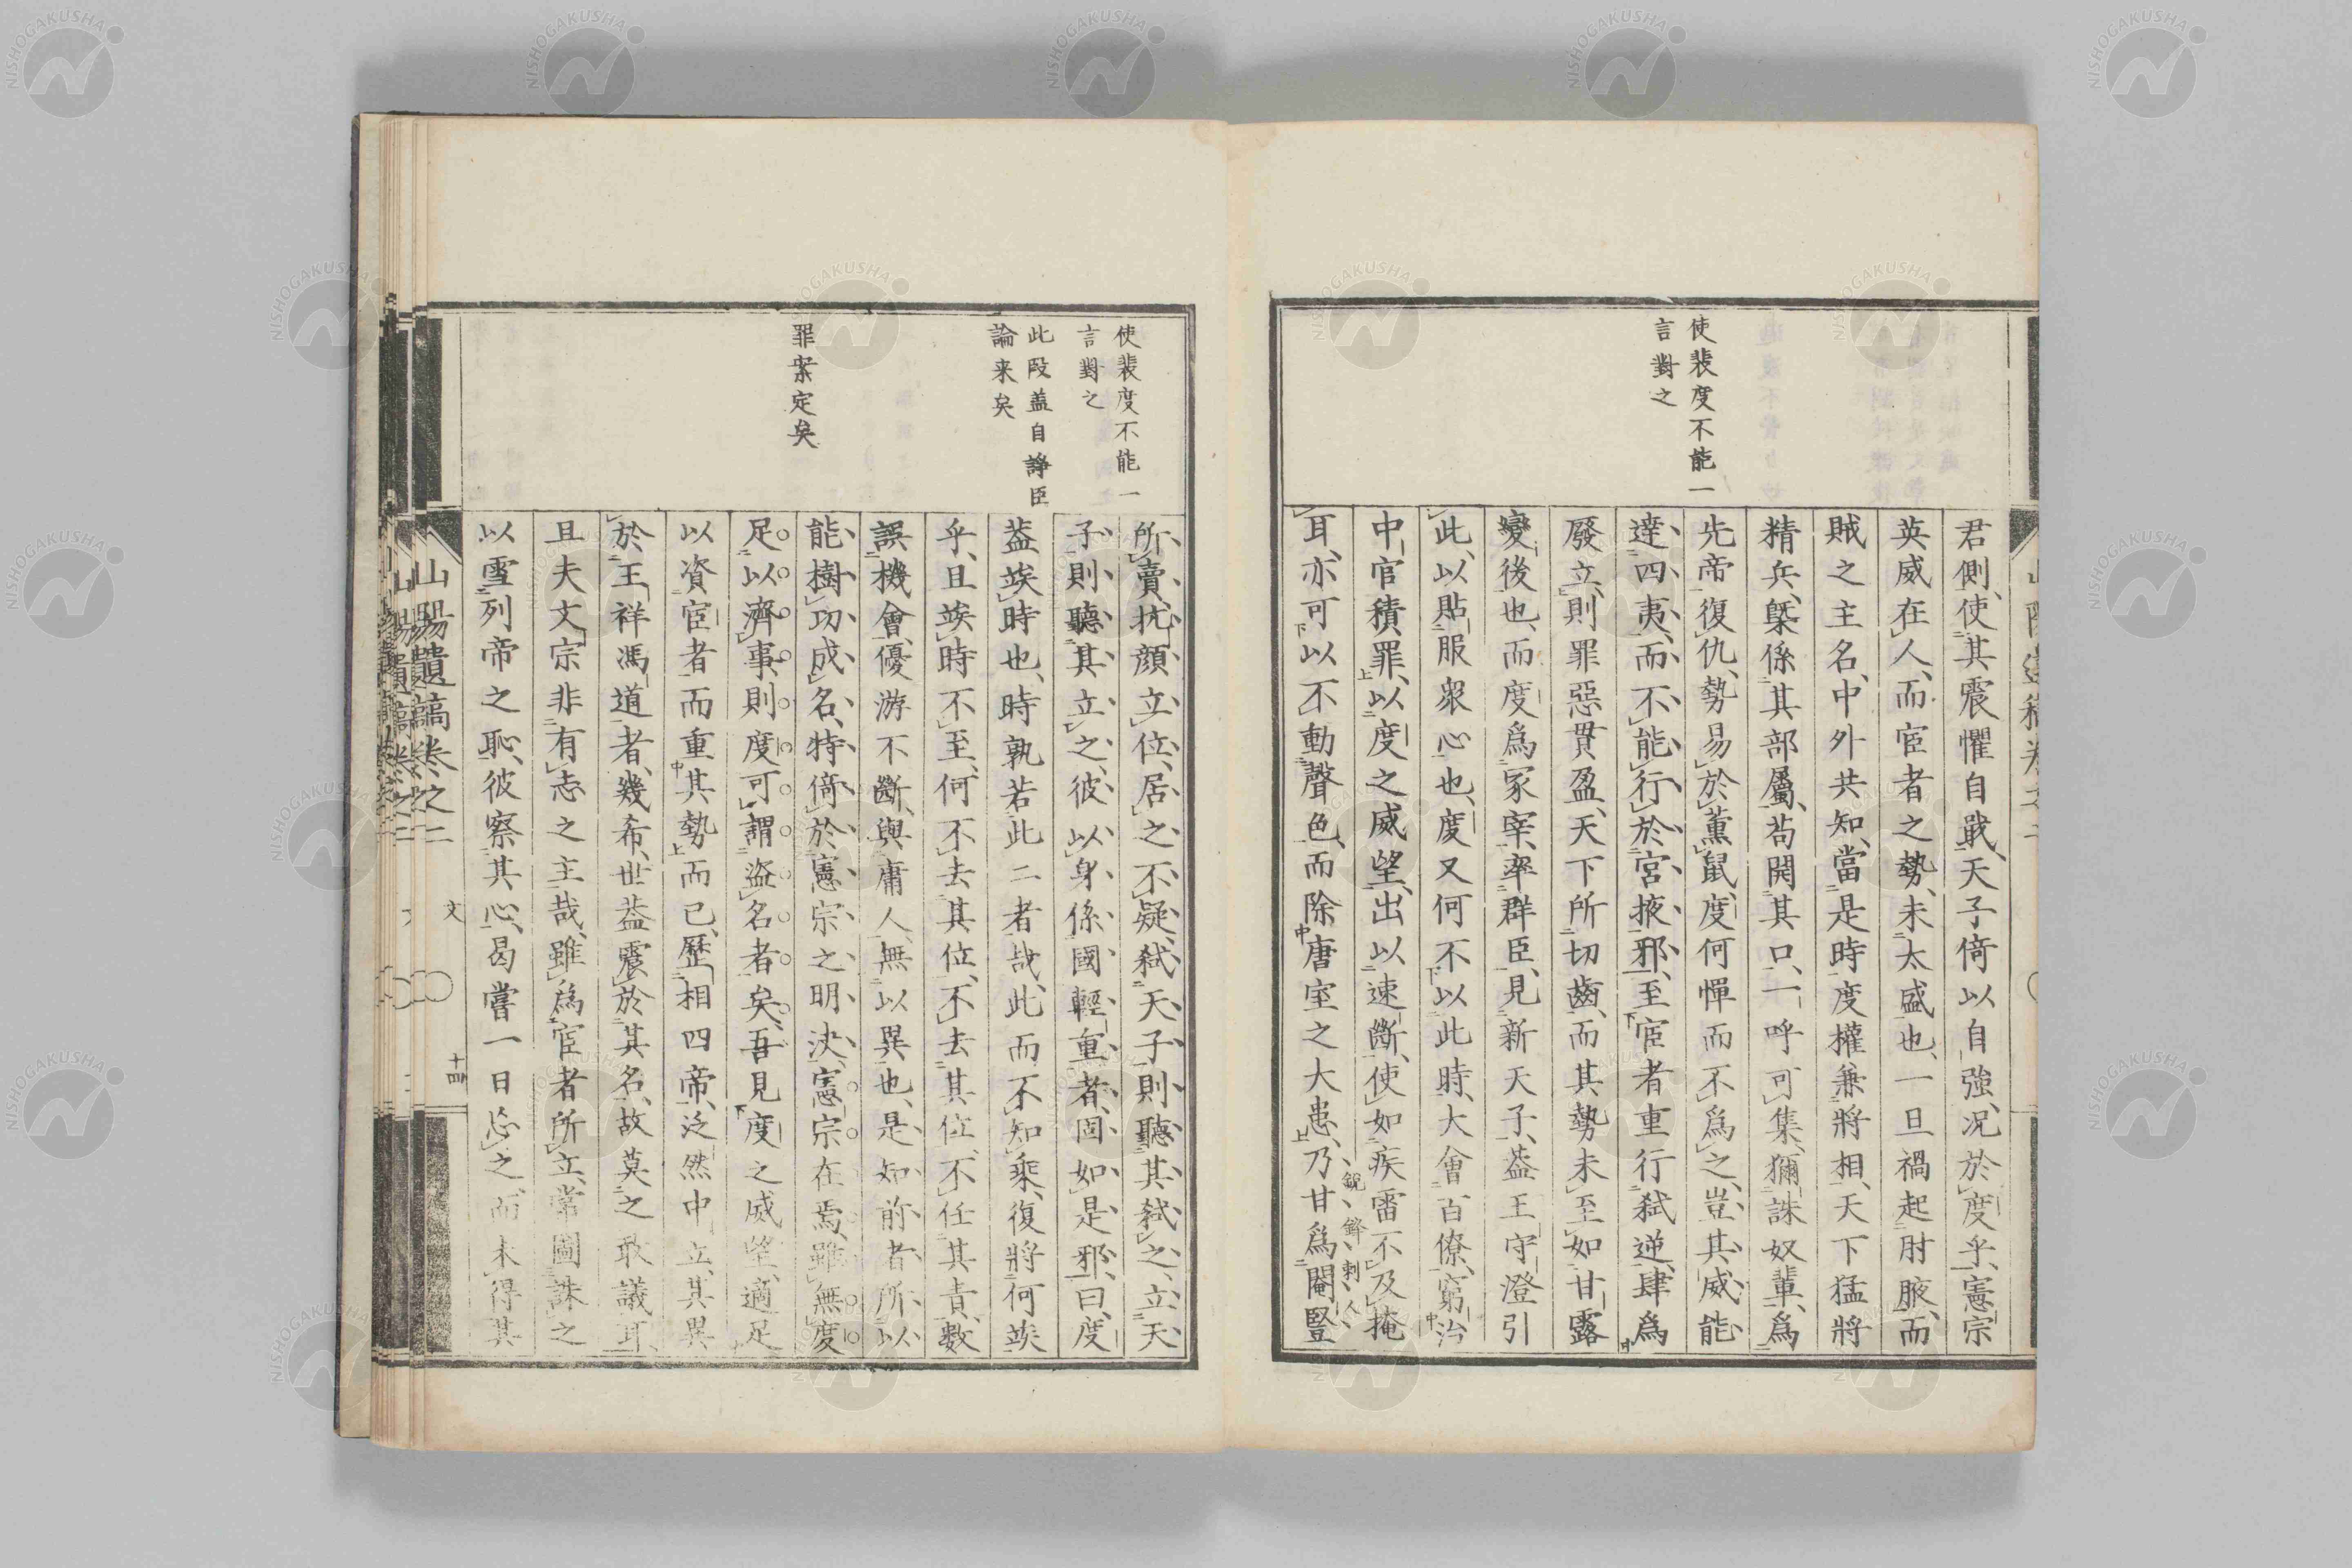 使裴度不能一
言對之
君側、使其震懼自戢、天子倚以自強、況於度乎、憲宗
英威在人、而宦者之勢、未太盛也、一旦禍起肘腋、而
賊之主名、中外共知、當是時度權兼將相、天下猛將
精兵、槩係其部屬、苟開其口、一呼可集、獮誅奴輩、爲
先帝復仇、勢易於薰鼠、度何憚而不爲之、豈其威能
達四夷、而不能行於宮掖邪、至宦者重行弑逆、肆爲
廢立、則罪惡貫盈、天下所切齒、而其勢未至如甘露
變後也、而度爲冢宰、率群臣、見新天子、蓋王守澄引
此、以貼服衆心也、度又何不以此時、大會百僚、窮治
中官積罪、以度之威望、出以速斷、使如疾雷不及掩
耳、亦可以不動聲色、而除唐室之大患、乃甘爲閹豎
銳鋒刺人
使裴度不能一
言對之
此段蓋自諍臣
論来矣
罪案定矣
所賣、抗顏立位、居之不疑、弑天子則聽其弑之、立天
子則聽其立之、彼以身係國輕重者、固如是邪、曰、度
蓋竢時也、時孰若此二者哉、此而不知乘、復將何竢
乎、且竢時不至、何不去其位、不去其位、不任其責、數
誤機會、優游不斷、與庸人無以異也、是知前者所以
能樹功成名、特倚於憲宗之明決、憲宗在焉、雖無度
足以濟事、則度可謂盜名者矣、吾見度之威望、適足
以資宦者而重其勢而已、歷相四帝、泛然中立、其異
於王祥馮道者、幾希、世蓋震於其名、故莫之敢議耳、
且夫文宗非有志之主哉、雖爲宦者所立、常圖誅之
以雪列帝之恥、彼察其心、曷嘗一日忘之、而未得其
山陽遺稿卷之二 文 十四